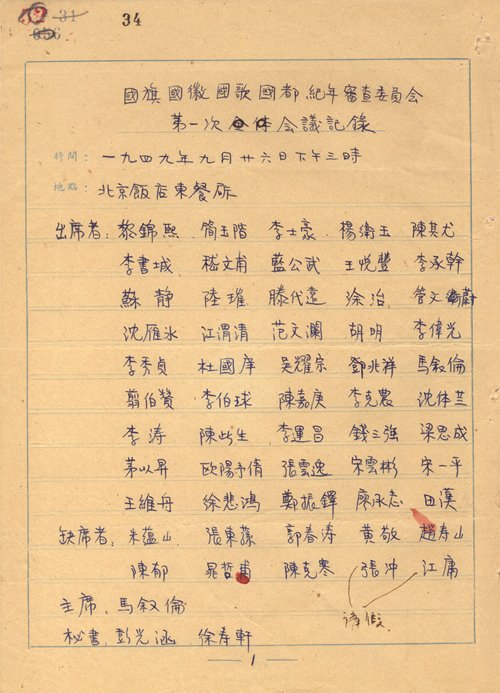 34
國旗國徽國歌國都紀年審查委員会
第一次全体会議記錄
時間：一九四九年九月廿六日下午三時
地點：北京飯店東餐厅
出席者：黎錦熙 簡玉階 李士豪 楊衛玉 陳其尤
李書城 嵇文甫 藍公武 王悦豐 李承幹
蘇静 陸璀 滕代遠 涂治 管文蔚
沈雁冰 江渭清 范文瀾 胡明 李偉光
李秀貞 杜國庠 吴耀宗 鄧兆祥 馬叙倫
翦伯赞 李伯球 陳嘉庚 李克農 沈体兰
李涛 陳此生 李運昌 錢三强 梁思成
茅以昇 欧陽予倩 張雲逸 宋雲彬 宋一平
王維舟 徐悲鴻 鄭振鐸 廖承志 田漢
缺席者：朱蕴山 張東蓀 郭春涛 黄敬 趙寿山
陳郁 晁哲甫 陳克寒 張冲 江庸
請假
主席：馬叙倫
秘書：彭光涵 徐寿軒
1